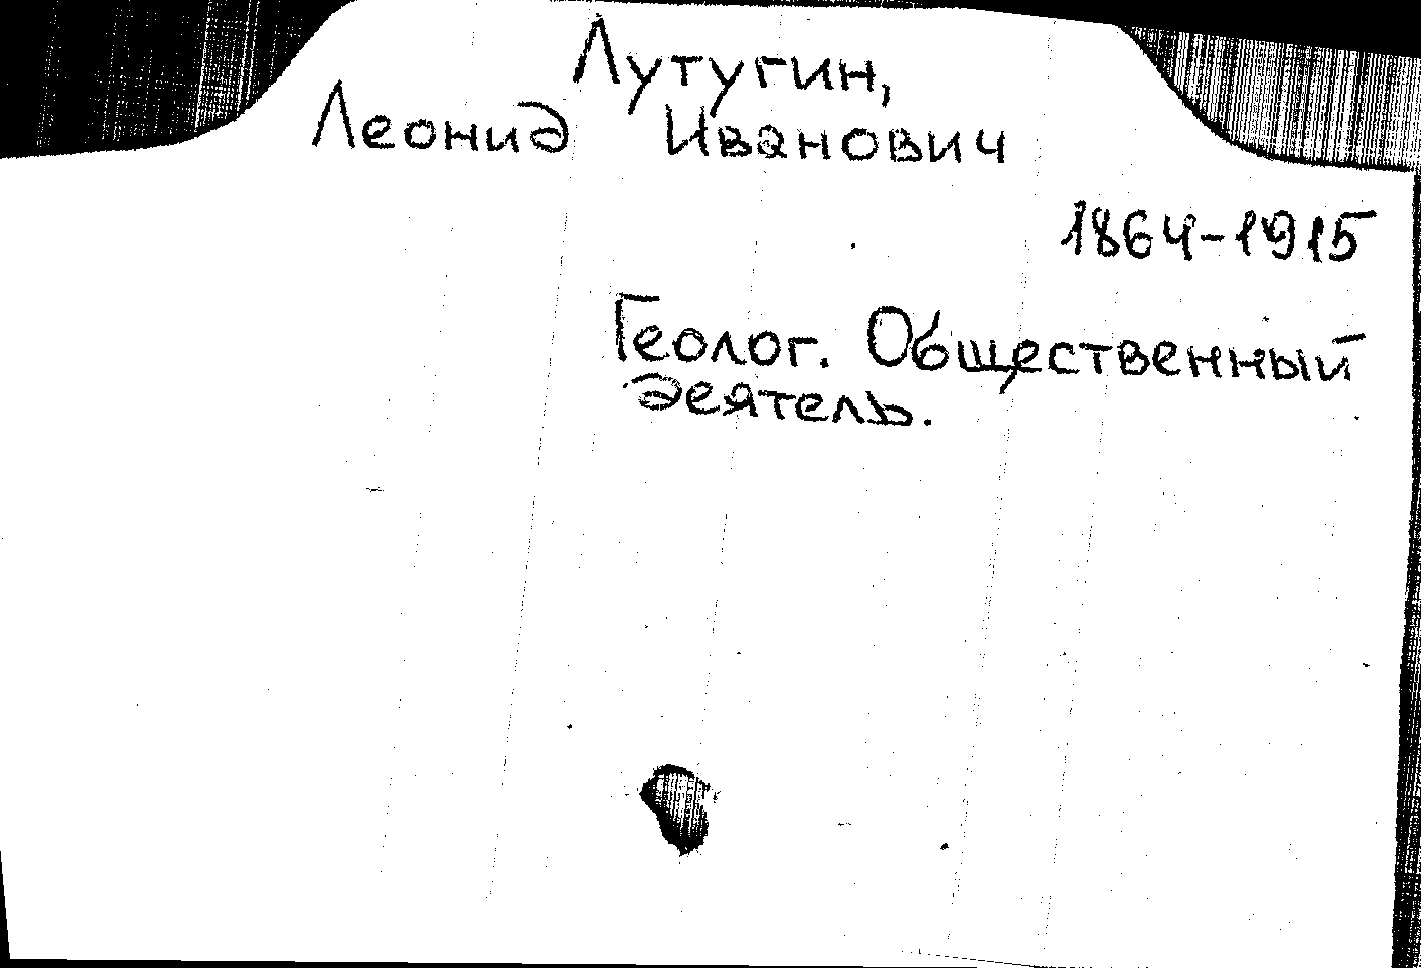 Лутугин,
Леонид Иванович
1864-1915
Геолог. Общественный
деятель.